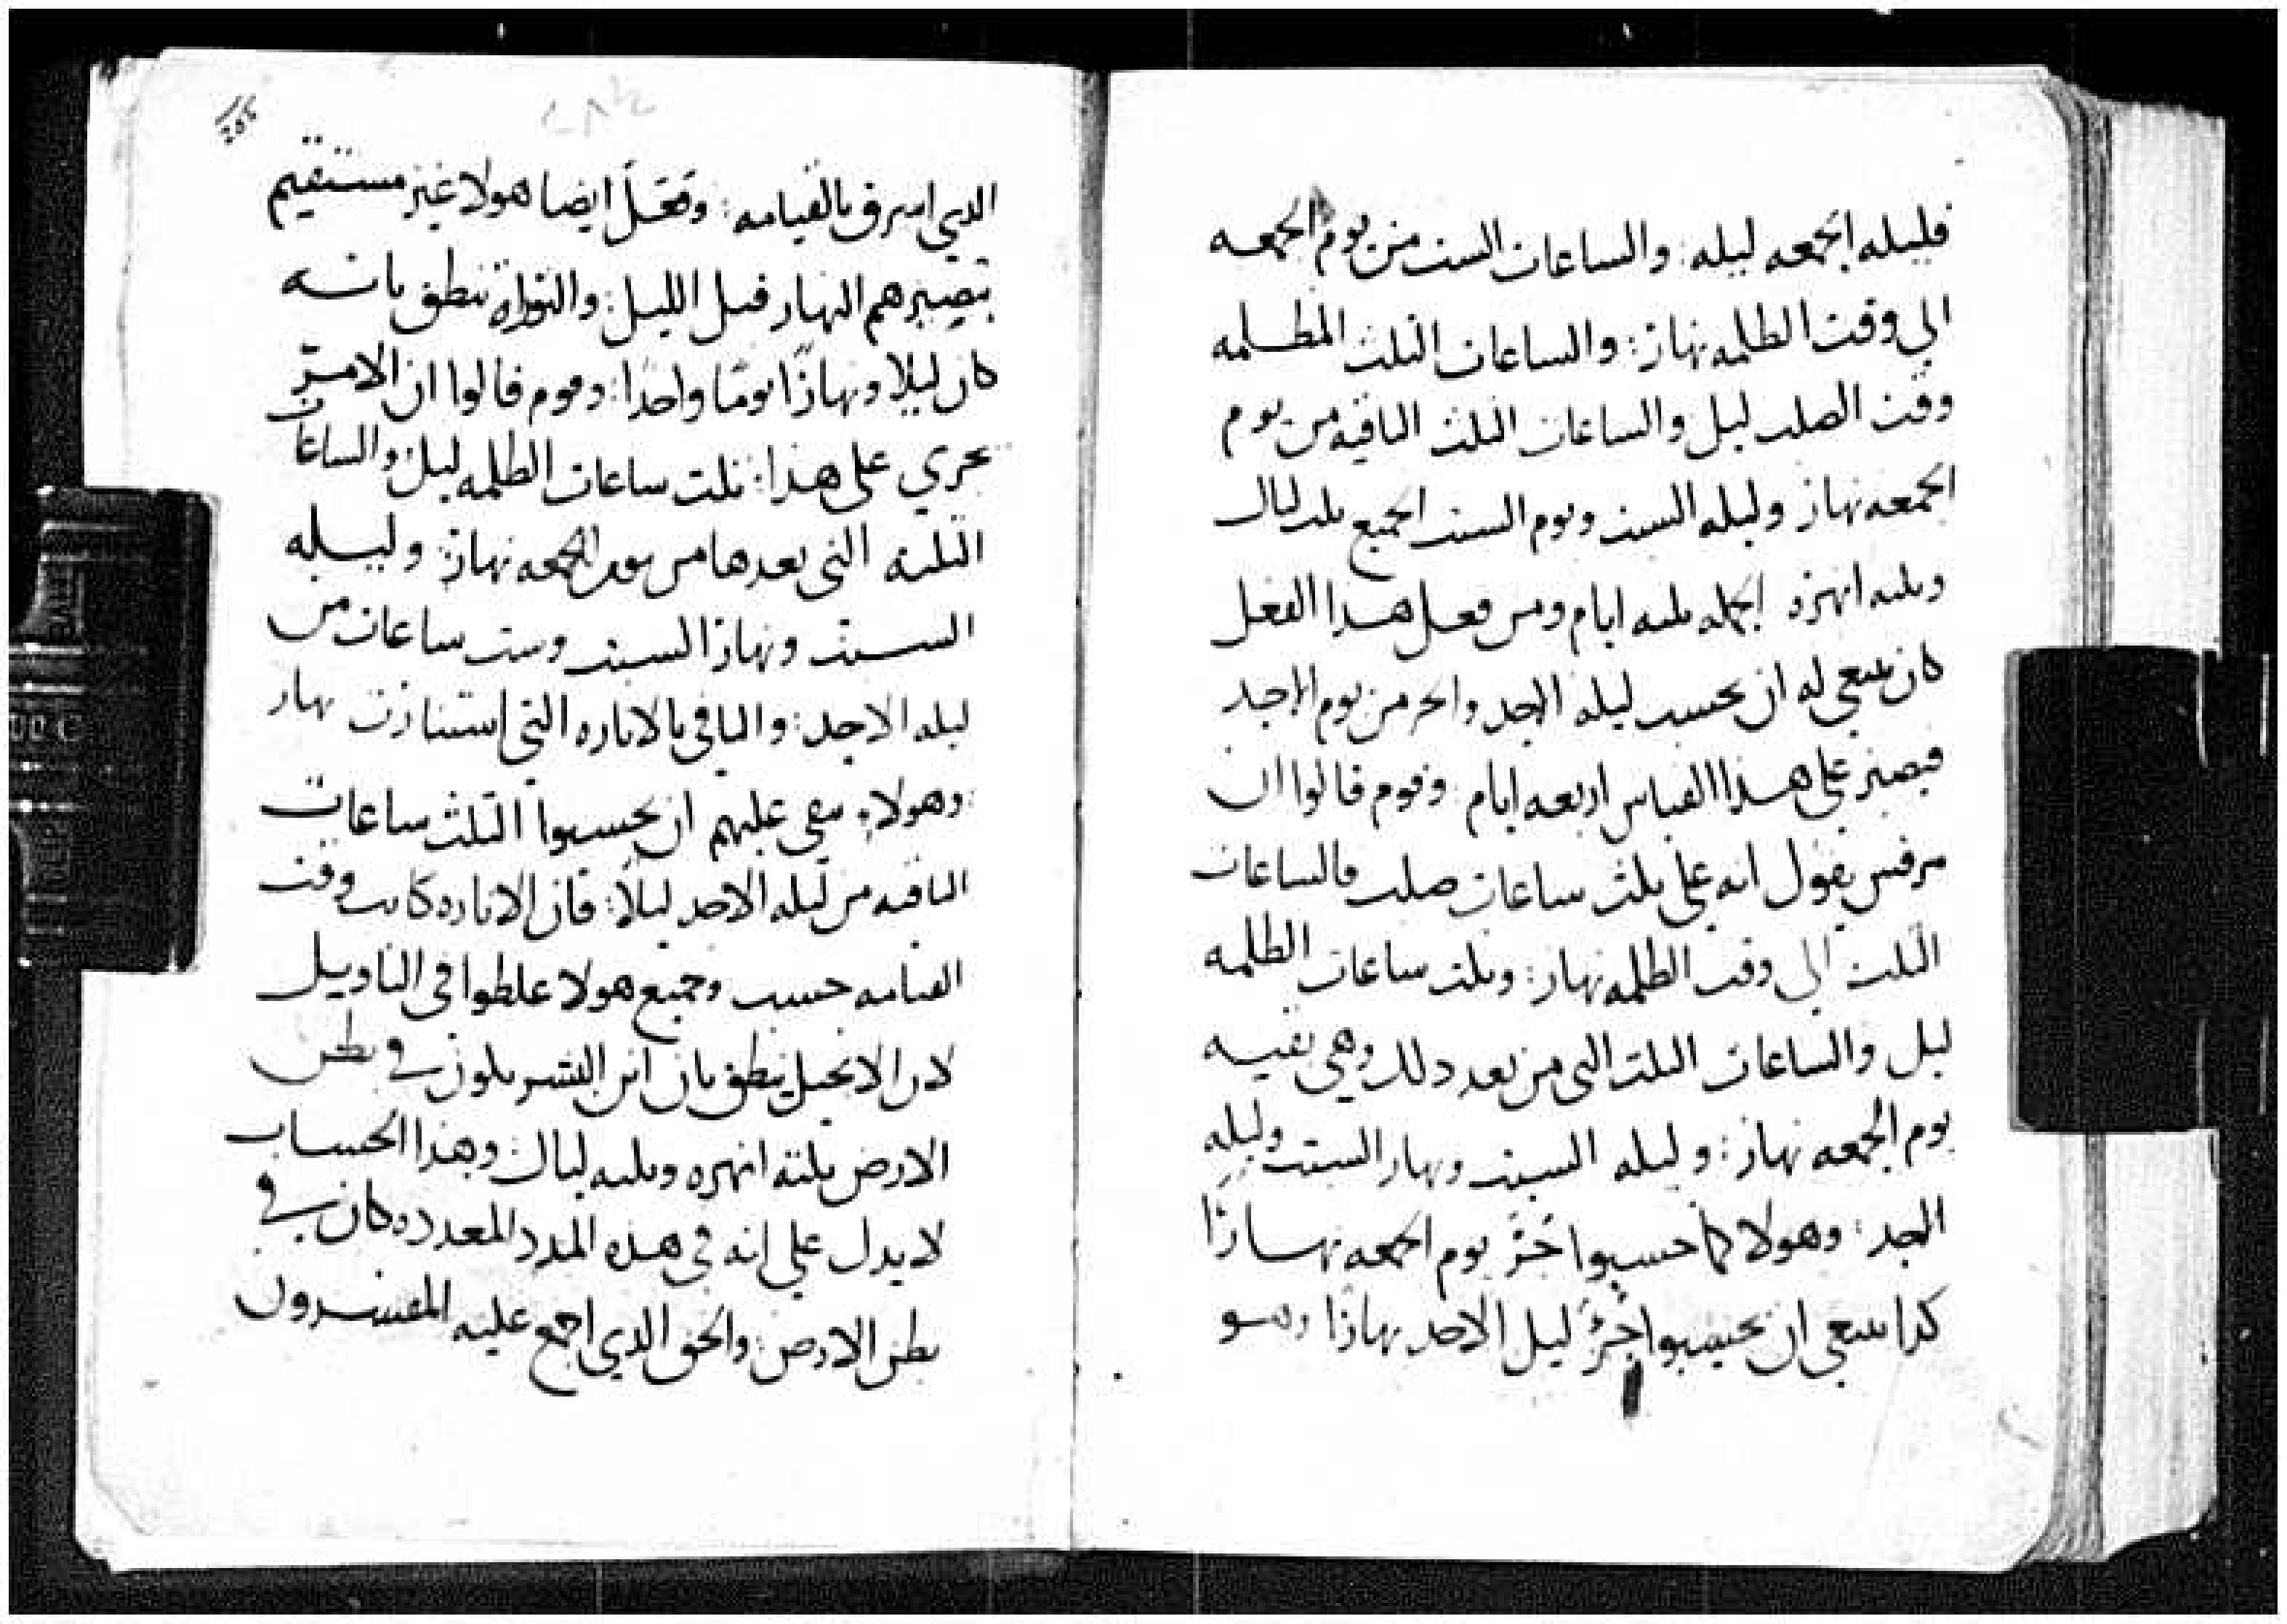 فليله الجمعه ليله: والساعات الست من يوم الجمعه
الي وقت الظلمه نهار: والساعات الثلث المظلمه
وقت الصلب ليل والساعات الثلث الباقيه من يوم
الجمعه نهار وليله السبت ويوم السبت الجميع ثلث ليال
وثلثه انهره الجمله ثلثه ايام ومن فعل هدا الفعل
كان ينبغي له ان يحسب ليله الاحد والحر من يوم الاحد
فيصير علي هدا القياس اربعه ايام وقوم قالوا ان
مرقس يقول انه علي ثلث ساعات صلب فالساعات
الثلث الي وقت الظلمه نهار: وثلث ساعات الظلمه
ليل والساعات الثلث التي من بعد دلك وهي بقيه
يوم الجمعه نهار: وليله السبت ونهار السبت وليله
الاحد: وهولا كما حسبوا جز يوم الجمعه نهارا
كدا ينبغي ان يحسبوا جز ليل الاحد نهارا وهو
الدي اشرق بالقيامه: وفعل ايضا هولا غير مستقيم
بتصييرهم النهار قبل الليل: والتوراه تنطق بانه
كان ليلا ونهارا يوما واحدا: وقوم قالوا ان الامر
يجري علي هذا: ثلت ساعات الظلمه ليل والساعات
الثلثه التي بعدها من يوم الجمعه نهار: وليله
السبت ونهار السبت وست ساعات من
ليله الاحد: والباقي بالاناره التي استنارت نهار
وهولاء بقي عليهم ان يحسبوا الثلث ساعات
الباقيه من ليله الاحد ليلا: فان الاناره كانت وقت
القيامه حسب وجميع هولا غلطوا في التاويل
لان الانجيل ينطق بان ابن البشر يكون في بطن
الارض ثلثه انهره وثلثه ليال: وهذا الحساب
لا يدل علي انه في هده المدد المعدده كان في
بطن الارض: والحق الدي اجمع عليه المفسرون